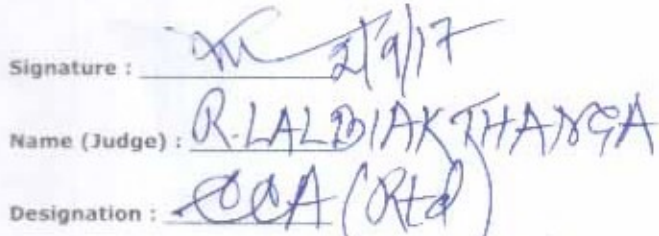 Signature : 2/9/17
Name (Judge) : R. LALBIAKTHANGA
Designation : CCA (Rtd)